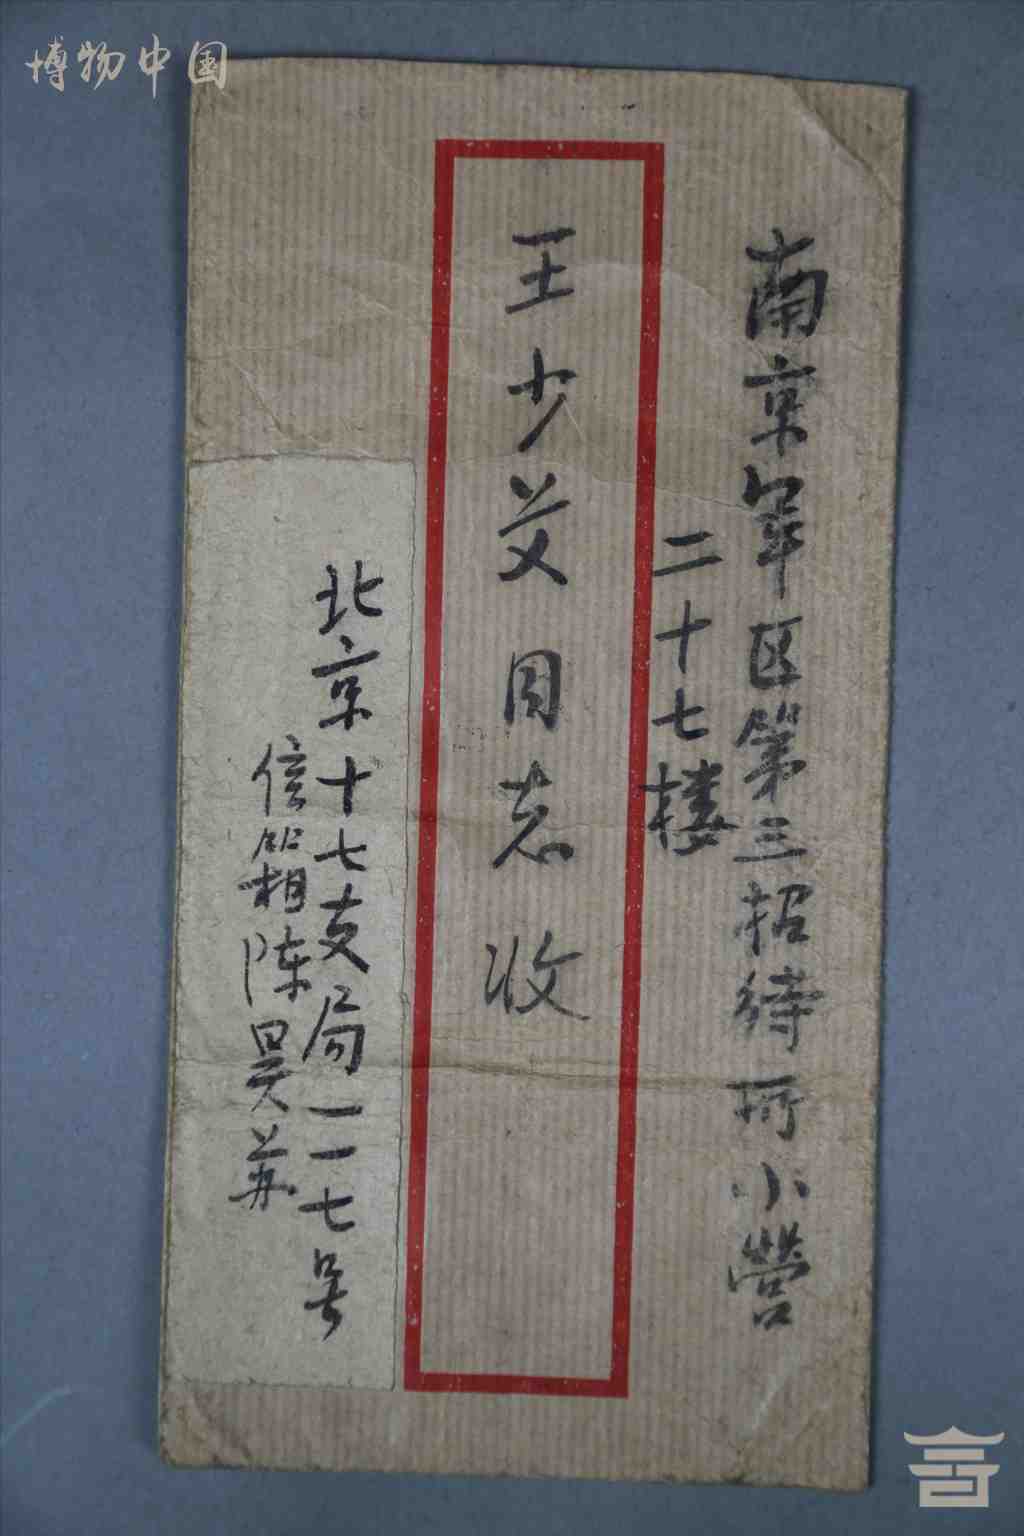 博物中国
南京军区第三招待所小营
二十七楼
王少艾同志收
北京十七支局一一七号
信箱陈昊苏